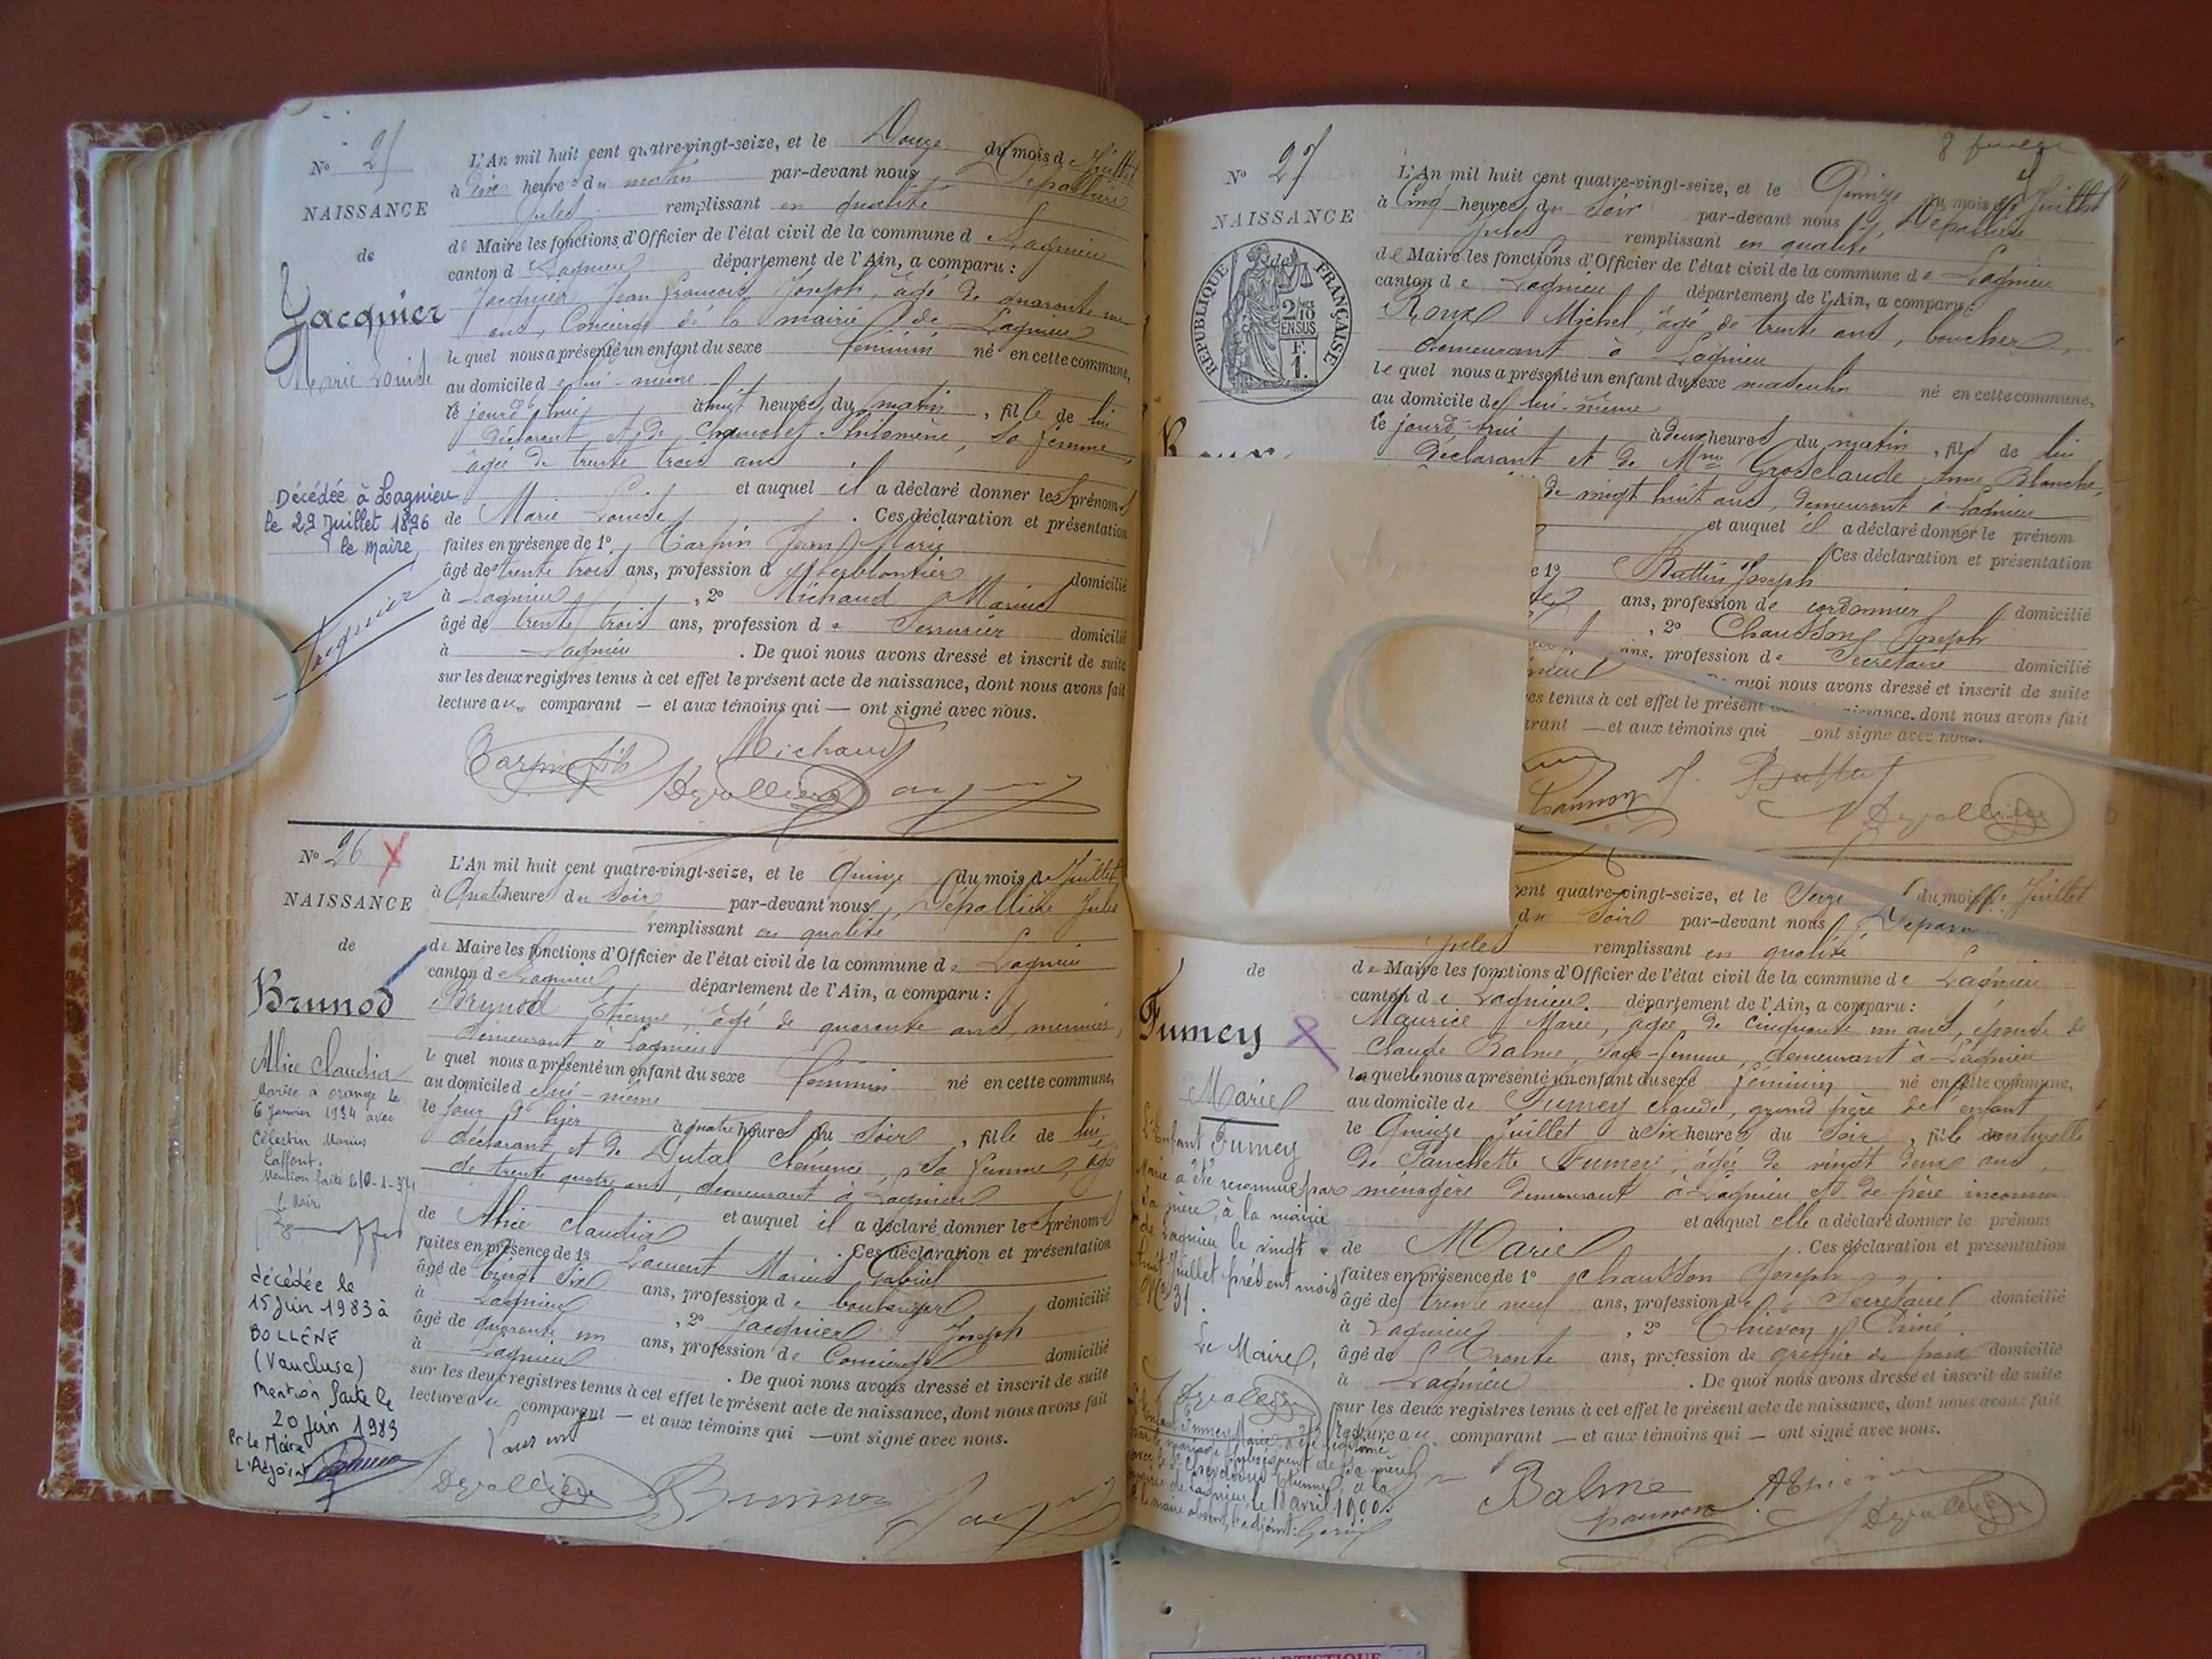 N° 25
NAISSANCE
de
Jacquier
Marie Louise
Décédée à Lagnieu
le 29 Juillet 1896
le Maire,
Jacquier
L'An mil huit cent quatre-vingt-seize, et le Douze du mois de Juillet
à dix heures du matin par-devant nous, Dépollière
Jules remplissant en qualité
de Maire les fonctions d'Officier de l'état civil de la commune d Lagnieu
canton d Lagnieu département de l'Ain, a comparu :
Jacquier Jean François Joseph, âgé de quarante un
ans, Concierge de la mairie de Lagnieu
le quel nous a présenté un enfant du sexe féminin né en cette commune,
au domicile de lui-même
le jourd'hui à huit heures du matin, fille de lui
déclarant et de Philomène, sa femme,
âgée de trente trois ans
et auquel il a déclaré donner les prénoms
de Marie Louise. Ces déclaration et présentation
faites en présence de 1° Tarpin Jean Marie
âgé de trente trois ans, profession d ferblantier domicilié
à Lagnieu, 2° Michaud Marius
âgé de trente trois ans, profession de Serrurier domicilié
à Lagnieu. De quoi nous avons dressé et inscrit de suite
sur les deux registres tenus à cet effet le présent acte de naissance, dont nous avons fait
lecture au comparant — et aux témoins qui — ont signé avec nous.
Tarpin fils Michaud
Dépollière
N° 26
NAISSANCE
de
Brunod
Alice Claudia
Mariée à Orange le
6 Janvier 1934 avec
Célestin Marius
Laffont.
Mention faite le 10-1-34
le Maire
décédée le
15 juin 1983 à
BOLLÈNE
(Vaucluse)
Mention faite le
20 juin 1983
Pr le Maire
L'Adjoint
L'An mil huit cent quatre-vingt-seize, et le Quinze du mois de Juillet
à Quatre heures du Soir par-devant nous, Dépollière Jules
remplissant en qualité
de Maire les fonctions d'Officier de l'état civil de la commune de Lagnieu
canton de Lagnieu département de l'Ain, a comparu :
Brunod Etienne, âgé de quarante ans, meunier,
demeurant à Lagnieu
le quel nous a présenté un enfant du sexe féminin né en cette commune,
au domicile de lui-même
le jour d'hier à quatre heures du Soir, fille de lui
déclarant et de Dutal Clémence, sa femme, âgée
de trente quatre ans, demeurant à Lagnieu
et auquel il a déclaré donner les prénoms
de Alice Claudia. Ces déclaration et présentation
faites en présence de 1° Laurent Marius Gabriel
âgé de vingt six ans, profession de boulanger domicilié
à Lagnieu, 2° Jacquier Joseph
âgé de quarante un ans, profession de Concierge domicilié
à Lagnieu. De quoi nous avons dressé et inscrit de suite
sur les deux registres tenus à cet effet le présent acte de naissance, dont nous avons fait
lecture au comparant — et aux témoins qui — ont signé avec nous.
Laurent
Dépollière Brunod Jacquier
N° 27
NAISSANCE
de
RÉPUBLIQUE FRANÇAISE
2/10 EN SUS
F. 1.
L'An mil huit cent quatre-vingt-seize, et le Quinze du mois de Juillet
à Cinq heures du Soir par-devant nous, Dépollière
Jules remplissant en qualité
de Maire les fonctions d'Officier de l'état civil de la commune de Lagnieu
canton de Lagnieu département de l'Ain, a comparu :
Roux Michel, âgé de trente ans, boucher,
demeurant à Lagnieu
le quel nous a présenté un enfant du sexe masculin né en cette commune,
au domicile de lui-même
le jourd'hui à deux heures du matin, fils de lui
déclarant et de Mme Grosclaude Anne Blanche,
de vingt huit ans, demeurant à Lagnieu
et auquel il a déclaré donner le prénom
Ces déclaration et présentation
e 1° Buttin Joseph
ans, profession de cordonnier domicilié
, 2° Chausson Joseph
ans, profession de Secrétaire domicilié
De quoi nous avons dressé et inscrit de suite
es tenus à cet effet le présent acte de naissance, dont nous avons fait
arant — et aux témoins qui ont signé avec nous.
Chausson J. Buttin
Dépollière
de
Fumey
Marie
L'Enfant Fumey
Marie a été reconnue par
sa mère, à la mairie
de Lagnieu le vingt
huit Juillet présent mois
N° 31.
Le Maire,
Dépollière
L'enfant Fumey Marie a été légitimé
par le mariage subséquent de sa mère
avec le Sr Etienne, à la
mairie de Lagnieu, le 18 avril 1900.
le maire absent, l'adjoint:
cent quatre-vingt-seize, et le Seize du mois de Juillet
du Soir par-devant nous,
Jules remplissant en qualité
de Maire les fonctions d'Officier de l'état civil de la commune de Lagnieu
canton de Lagnieu département de l'Ain, a comparu :
Maurice Marie, âgée de Cinquante un ans, épouse de
Claude Balme, Sage-femme, demeurant à Lagnieu
laquelle nous a présenté un enfant du sexe féminin né en cette commune,
au domicile de Fumey Claude, grand père de l'enfant
le Quinze Juillet à Six heures du Soir, fille naturelle
de Fanchette Fumey, âgée de vingt deux ans,
ménagère demeurant à Lagnieu et de père inconnu
et auquel elle a déclaré donner le prénom
de Marie. Ces déclaration et présentation
faites en présence de 1° Chausson Joseph
âgé de trente neuf ans, profession de Secrétaire domicilié
à Lagnieu, 2° Thievon Aimé
âgé de Trente ans, profession de greffier de paix domicilié
à Lagnieu. De quoi nous avons dressé et inscrit de suite
sur les deux registres tenus à cet effet le présent acte de naissance, dont nous avons fait
lecture au comparant — et aux témoins qui — ont signé avec nous.
Balme
Chausson
Dépollière